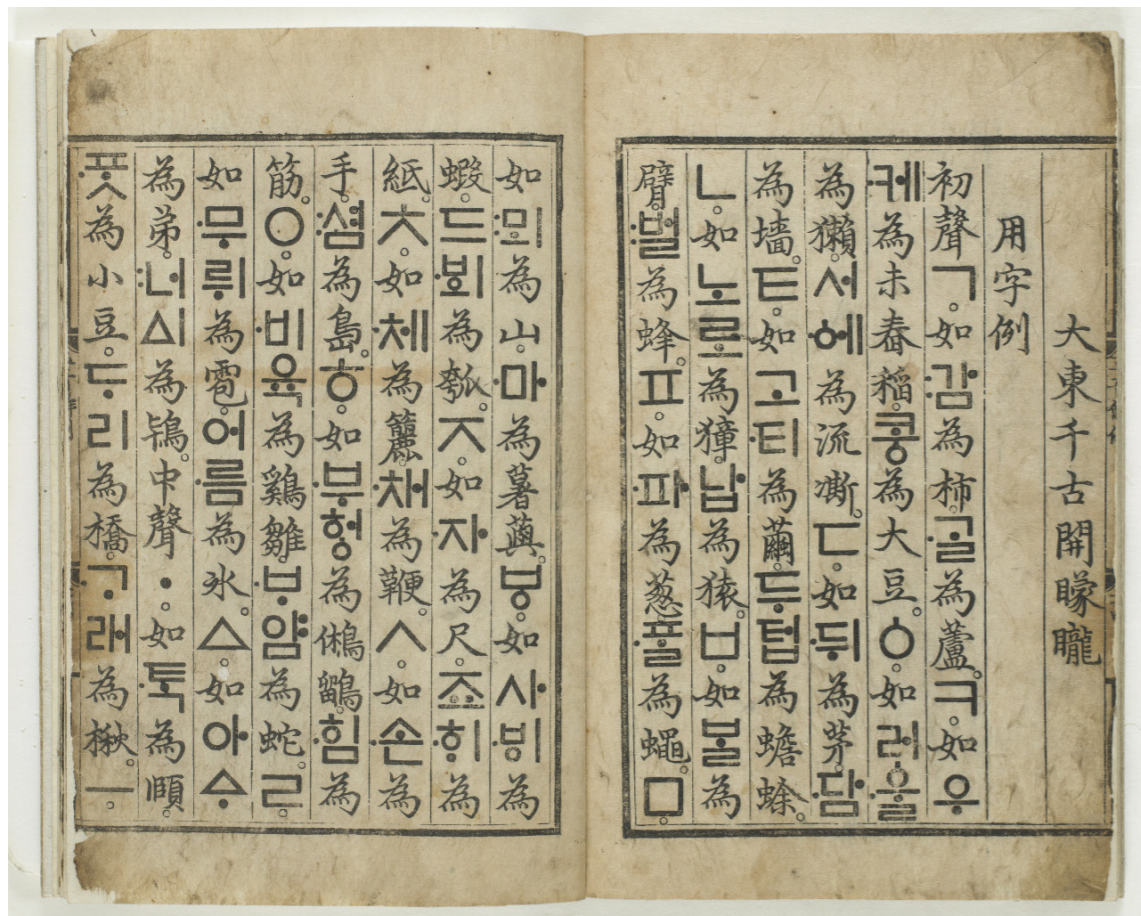 大東千古開矇矓
用字例
初聲ㄱ。如:감為柿。·ᄀᆞᆯ為蘆。ㅋ。如우
·케為未舂稻。콩為大豆。ㆁ。如러·울
為獺。서·에為流凘。ㄷ。如·뒤為茅。·담
為墻。ㅌ。如고·티為繭。두텁為蟾蜍。
ㄴ。如노로為獐。납為猿。ㅂ。如ᄇᆞᆯ為
臂。:벌為蜂。ㅍ。如·파為葱。·ᄑᆞᆯ為蠅。ㅁ。
如:뫼為山。·마為薯藇。ㅸ。如사·ᄫᅵ為
蝦。드·ᄫᅴ為瓠。ㅈ。如·자為尺。죠·ᄒᆡ為
紙。ㅊ。如·체為籭。·채為鞭。ㅅ。如·손為
手。:셤為島。ㅎ。如·부허ᇰ為鵂鶹。·힘為
筋。ㅇ。如·비육為鷄雛。·ᄇᆞ얌為蛇。ㄹ。
如·무뤼為雹。어·름為氷。ㅿ。如아ᅀᆞ
為弟。:너ᅀᅵ為鴇。中聲ㆍ。如·ᄐᆞᆨ為頤。
·ᄑᆞᆺ為小豆。ᄃᆞ리為橋。·ᄀᆞ래為楸。ㅡ。